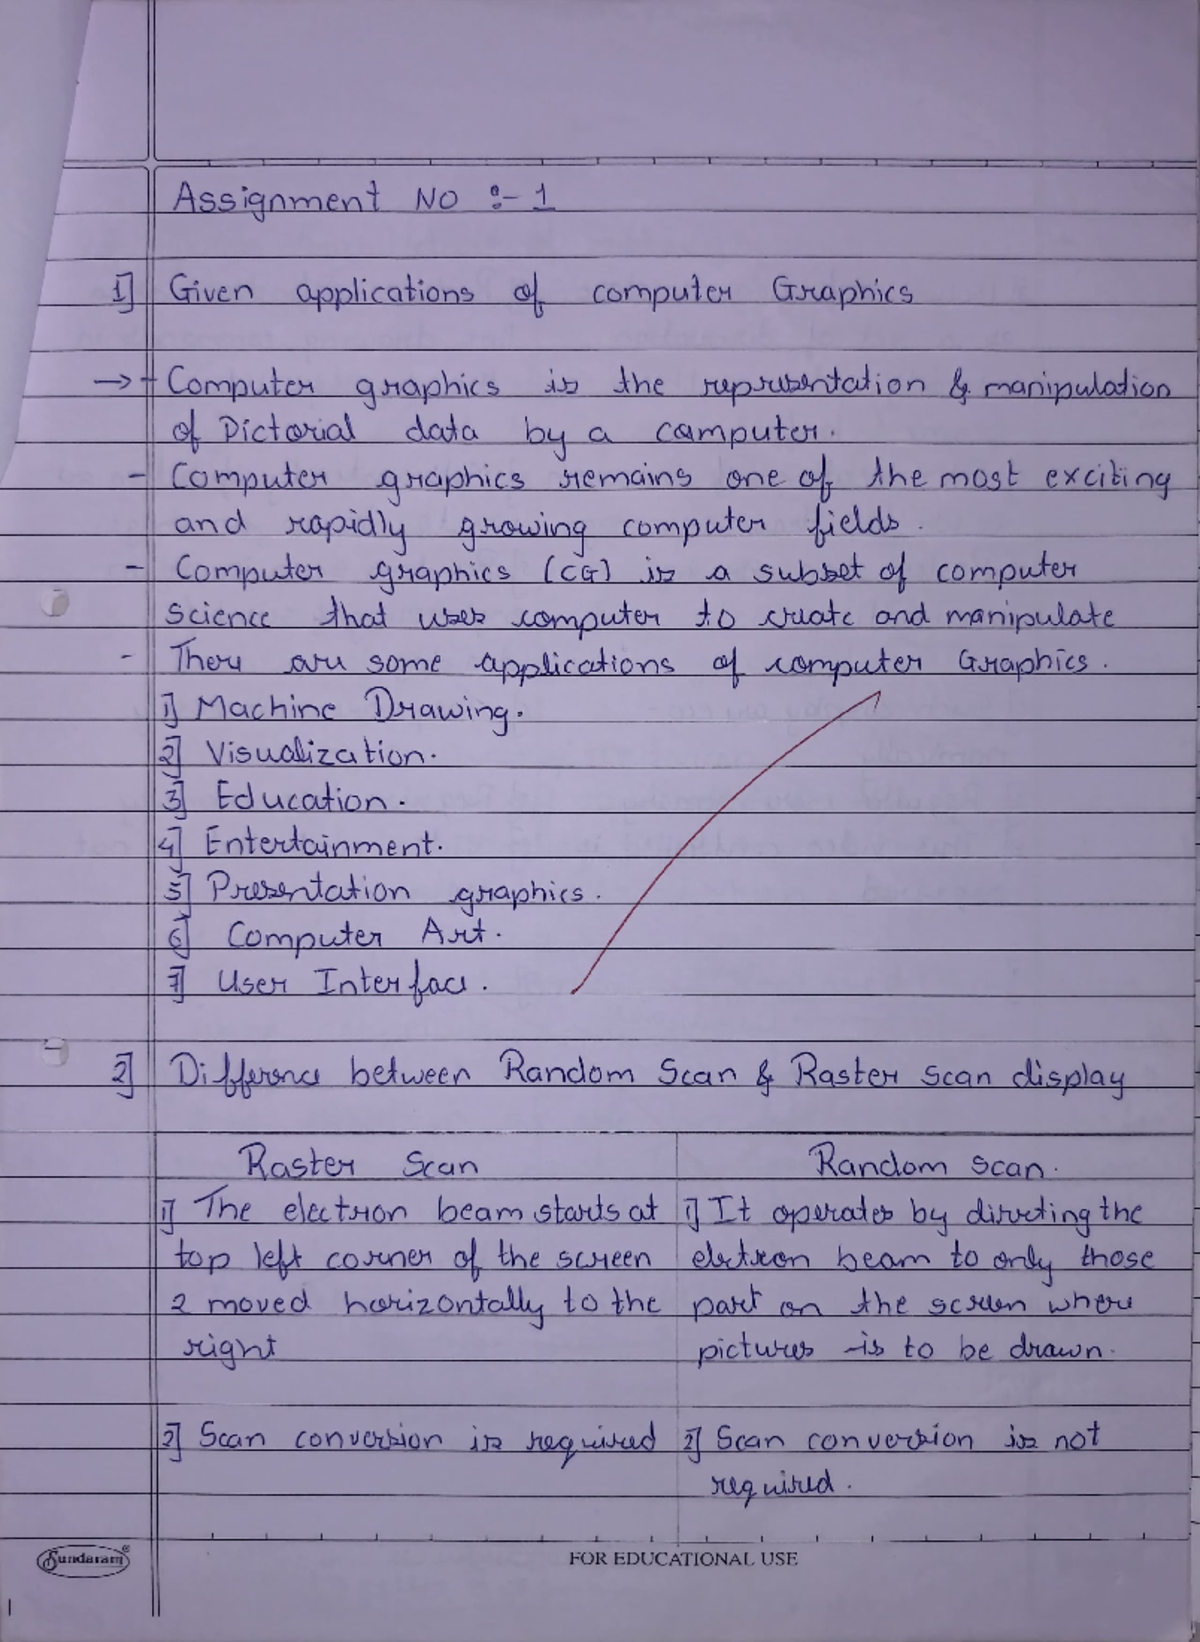 Assignment NO :- 1
1] Given applications of computer Graphics
→ - Computer graphics is the representation & manipulation
of Pictorial data by a computer.
- Computer graphics remains one of the most exciting
and rapidly growing computer fields.
- Computer graphics (CG) is a subset of computer
science that uses computer to create and manipulate
- There are some applications of computer Graphics.
1] Machine Drawing.
2] Visualization.
3] Education.
4] Entertainment.
5] Presentation graphics.
6] Computer Art.
7] User Interface.
2] Difference between Random Scan & Raster scan display
Raster Scan
1] The electron beam starts at
top left corner of the screen
2 moved horizontally to the
right
2] Scan conversion is required
Random scan.
1] It operates by directing the
electron beam to only those
part on the screen where
pictures is to be drawn.
2] Scan conversion is not
required.
Sundaram
FOR EDUCATIONAL USE